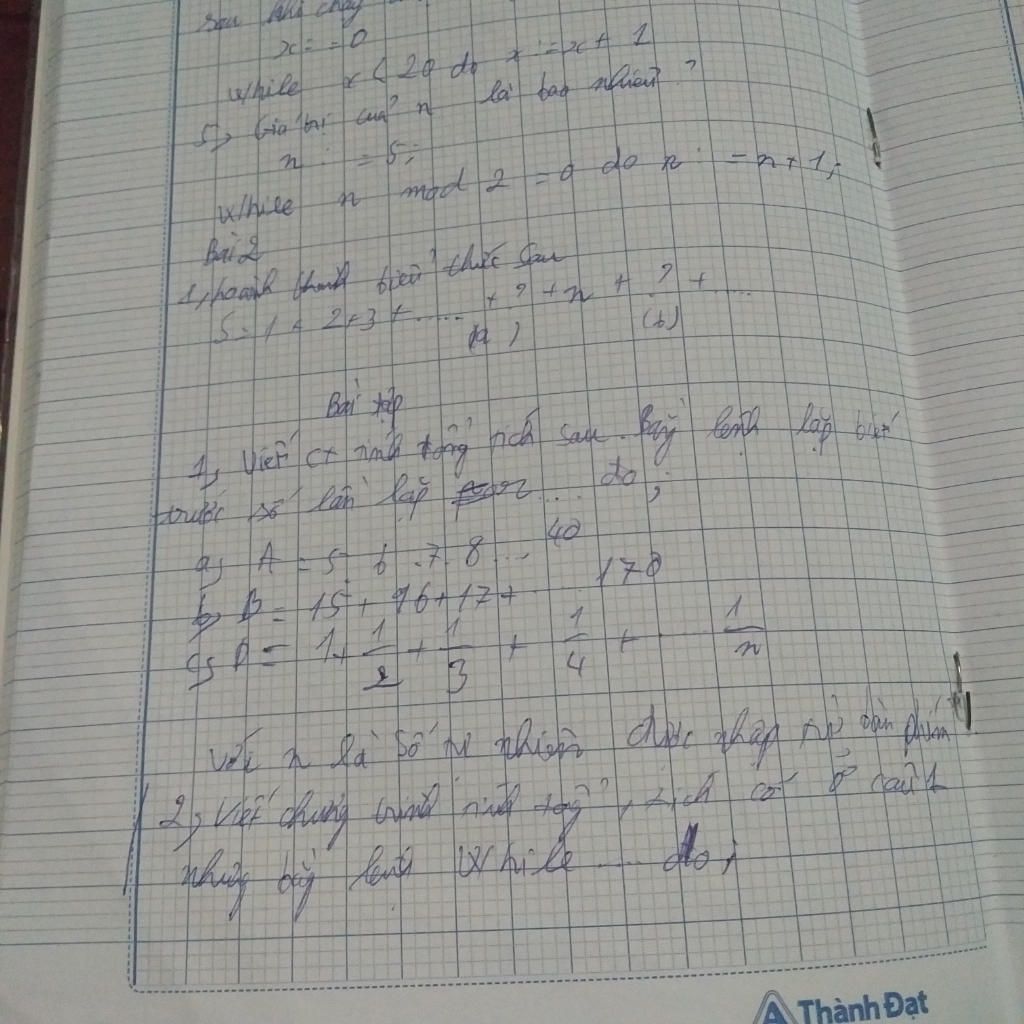 sau khi chạy
x := 0
While x < 20 do x := x + 1
5, Giá trị của n là bao nhiêu?
n := 5;
While n mod 2 = 0 do n := n + 1;
Bài 2
1, hoành thành biểu thức sau
S = 1 + 2 + 3 + ..... + ? + n + ? + ....
(a) (b)
Bài tập
1, Viết ct tính tổng tích sau bằng lệnh lặp biết
trước số lần lặp for ... do;
a, A = 5 . 6 . 7 . 8 ... 40
b, B = 15 + 16 + 17 + ... 178
c, D = 1 + 1/2 + 1/3 + 1/4 + ... 1/n
với n là số tự nhiên được nhập từ bàn phím
2, Viết chương trình tính tổng, tích có ở câu 1
nhưng bằng lệnh While .... do;
Thành Đạt